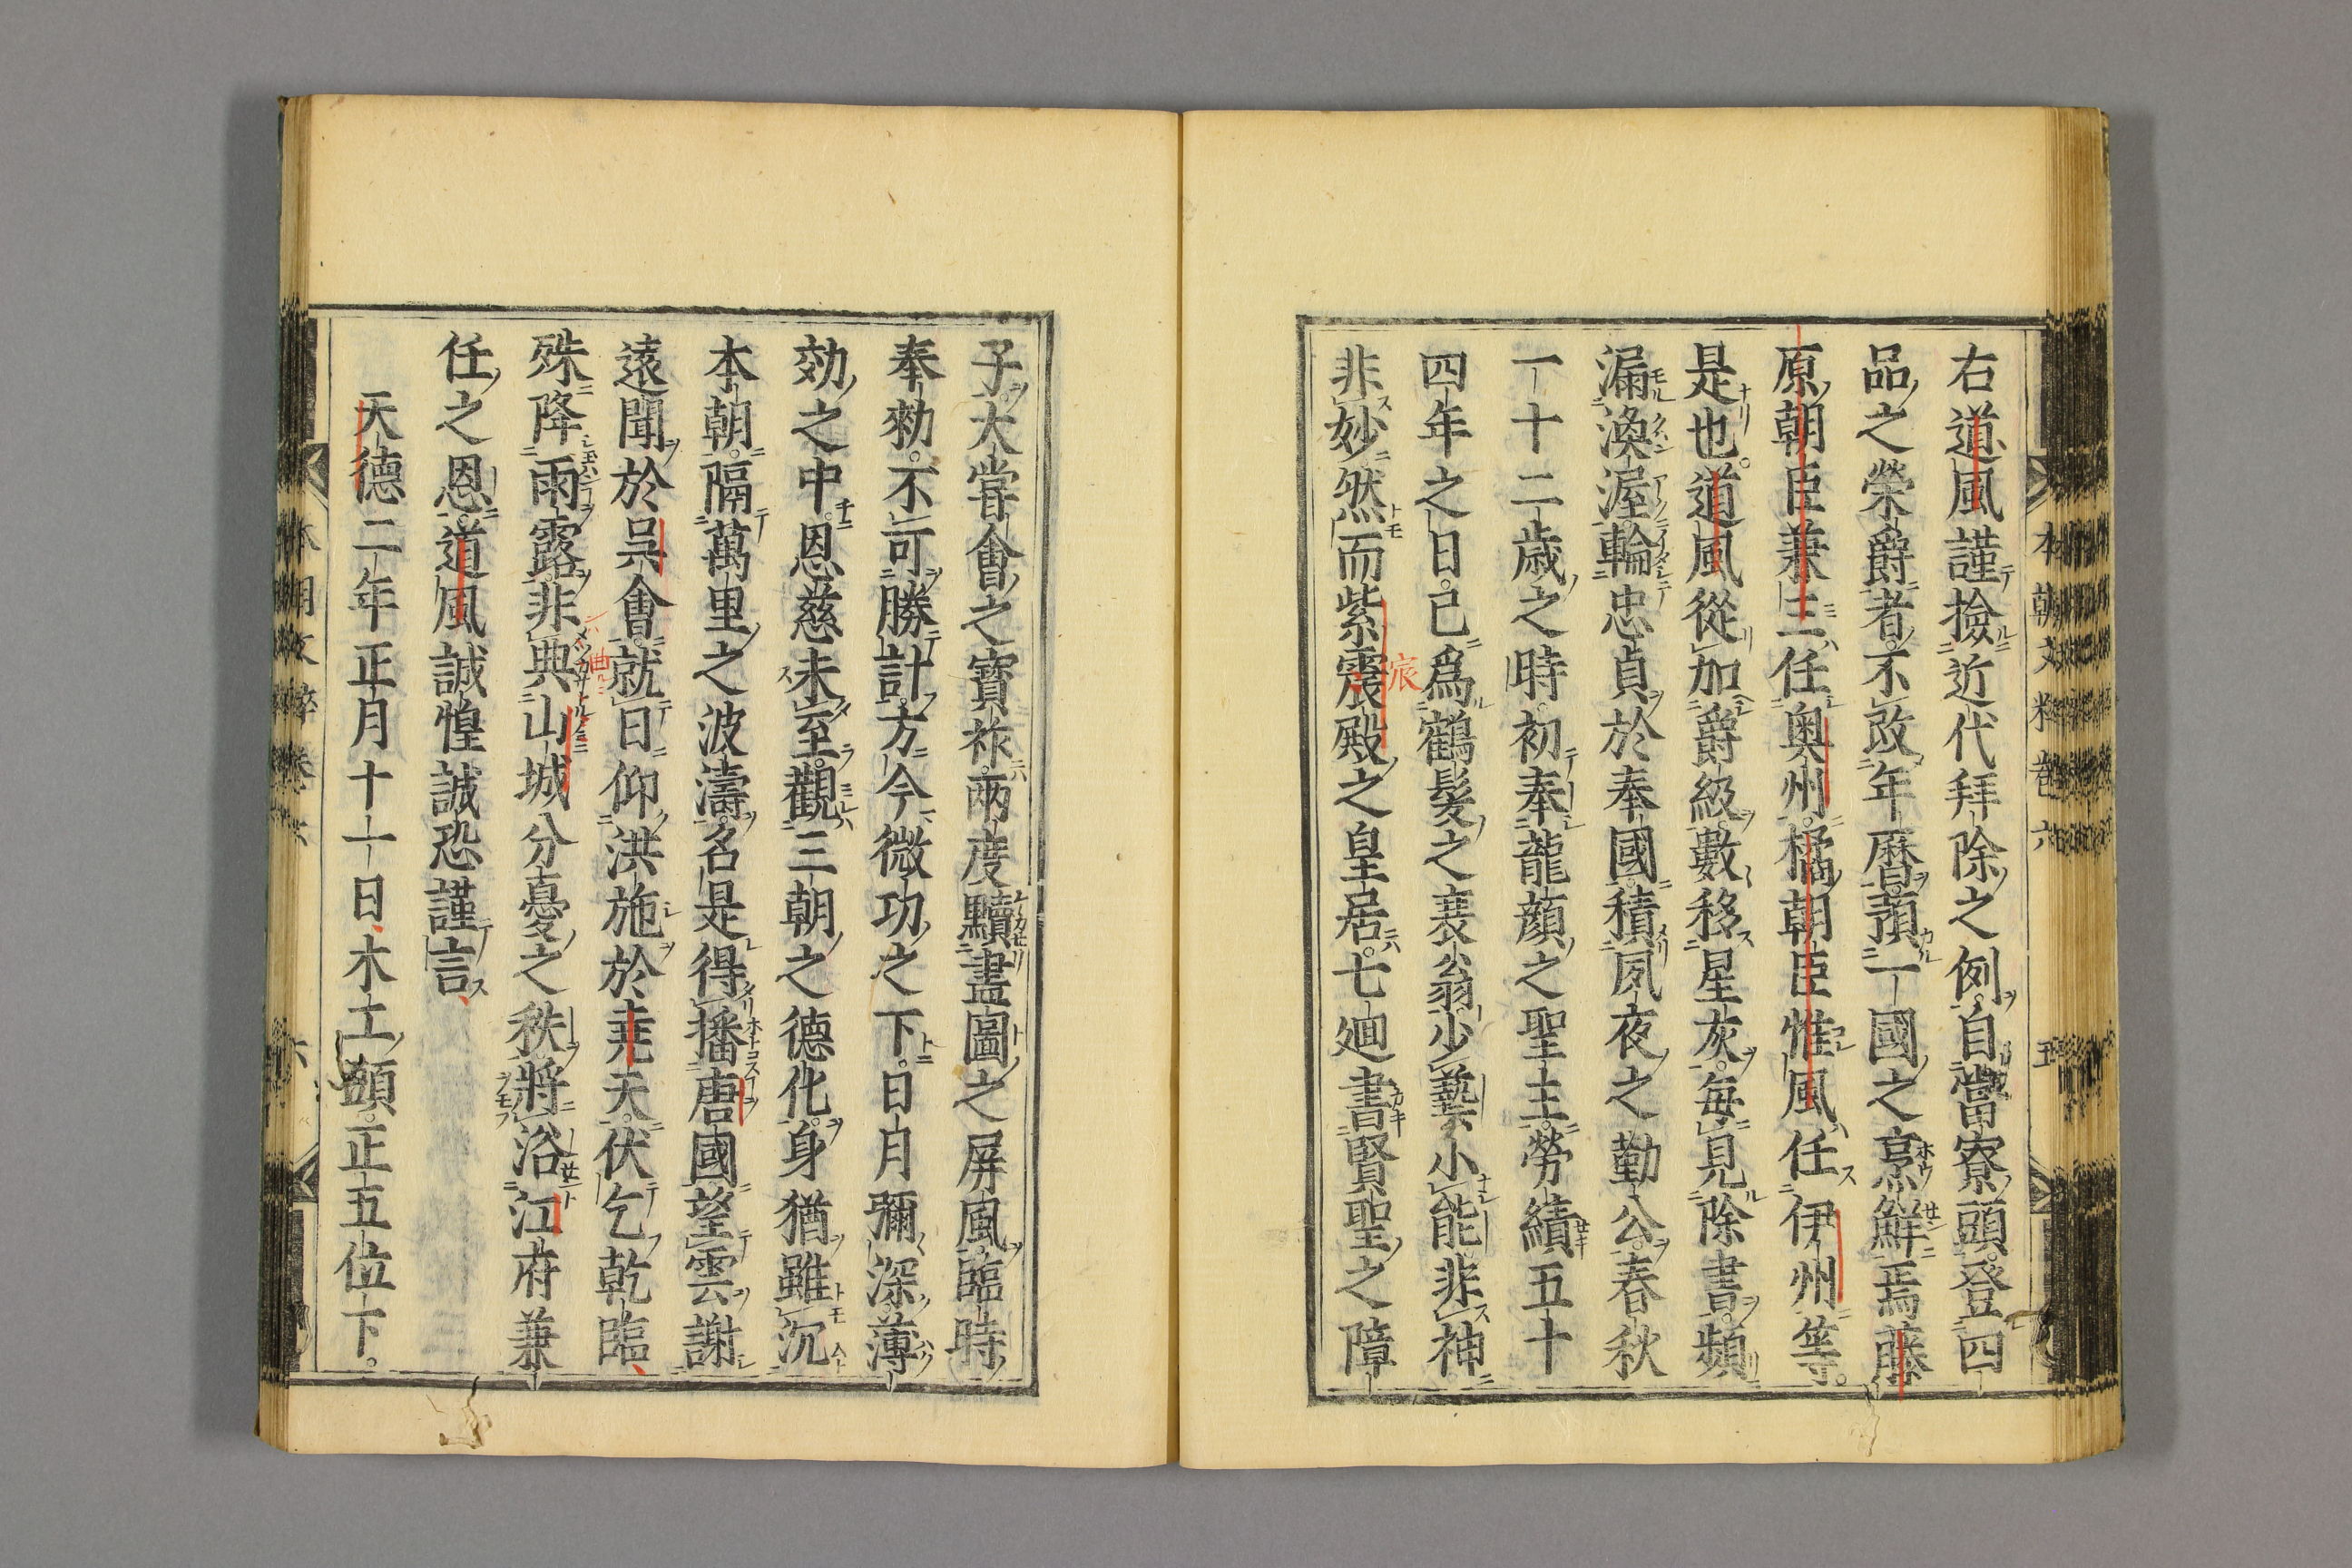 右道風謹撿近代拜除之例自當寮頭登四
品之榮爵者不改年曆預一國之烹鮮焉藤
原朝臣兼三任奧州橘朝臣惟風任伊州等
是也道風從加爵級數移星灰每見除書頻
漏渙渥輪忠貞於奉國積夙夜之勤公春秋
一十二歳之時初奉龍顔之聖主勞績五十
四年之日已爲鶴髮之衰翁少藝小能非神
非妙然而紫震殿之皇居七廻書賢聖之障
宸
本朝文粹卷六
五
子大甞會之寶祚兩度黷畫圖之屏風臨時
奉勑不可勝計方今微功之下日月彌深薄
効之中恩慈未至觀三朝之德化身猶雖沉
本朝隔萬里之波濤名是得播唐國望雲謝
遠聞於呉會就日仰洪施於堯天伏乞乾臨
殊降雨露非典山城分憂之秩將浴江府兼
曲
任之恩道風誠惶誠恐謹言
天德二年正月十一日木工頭正五位下
本朝文粹卷六
六